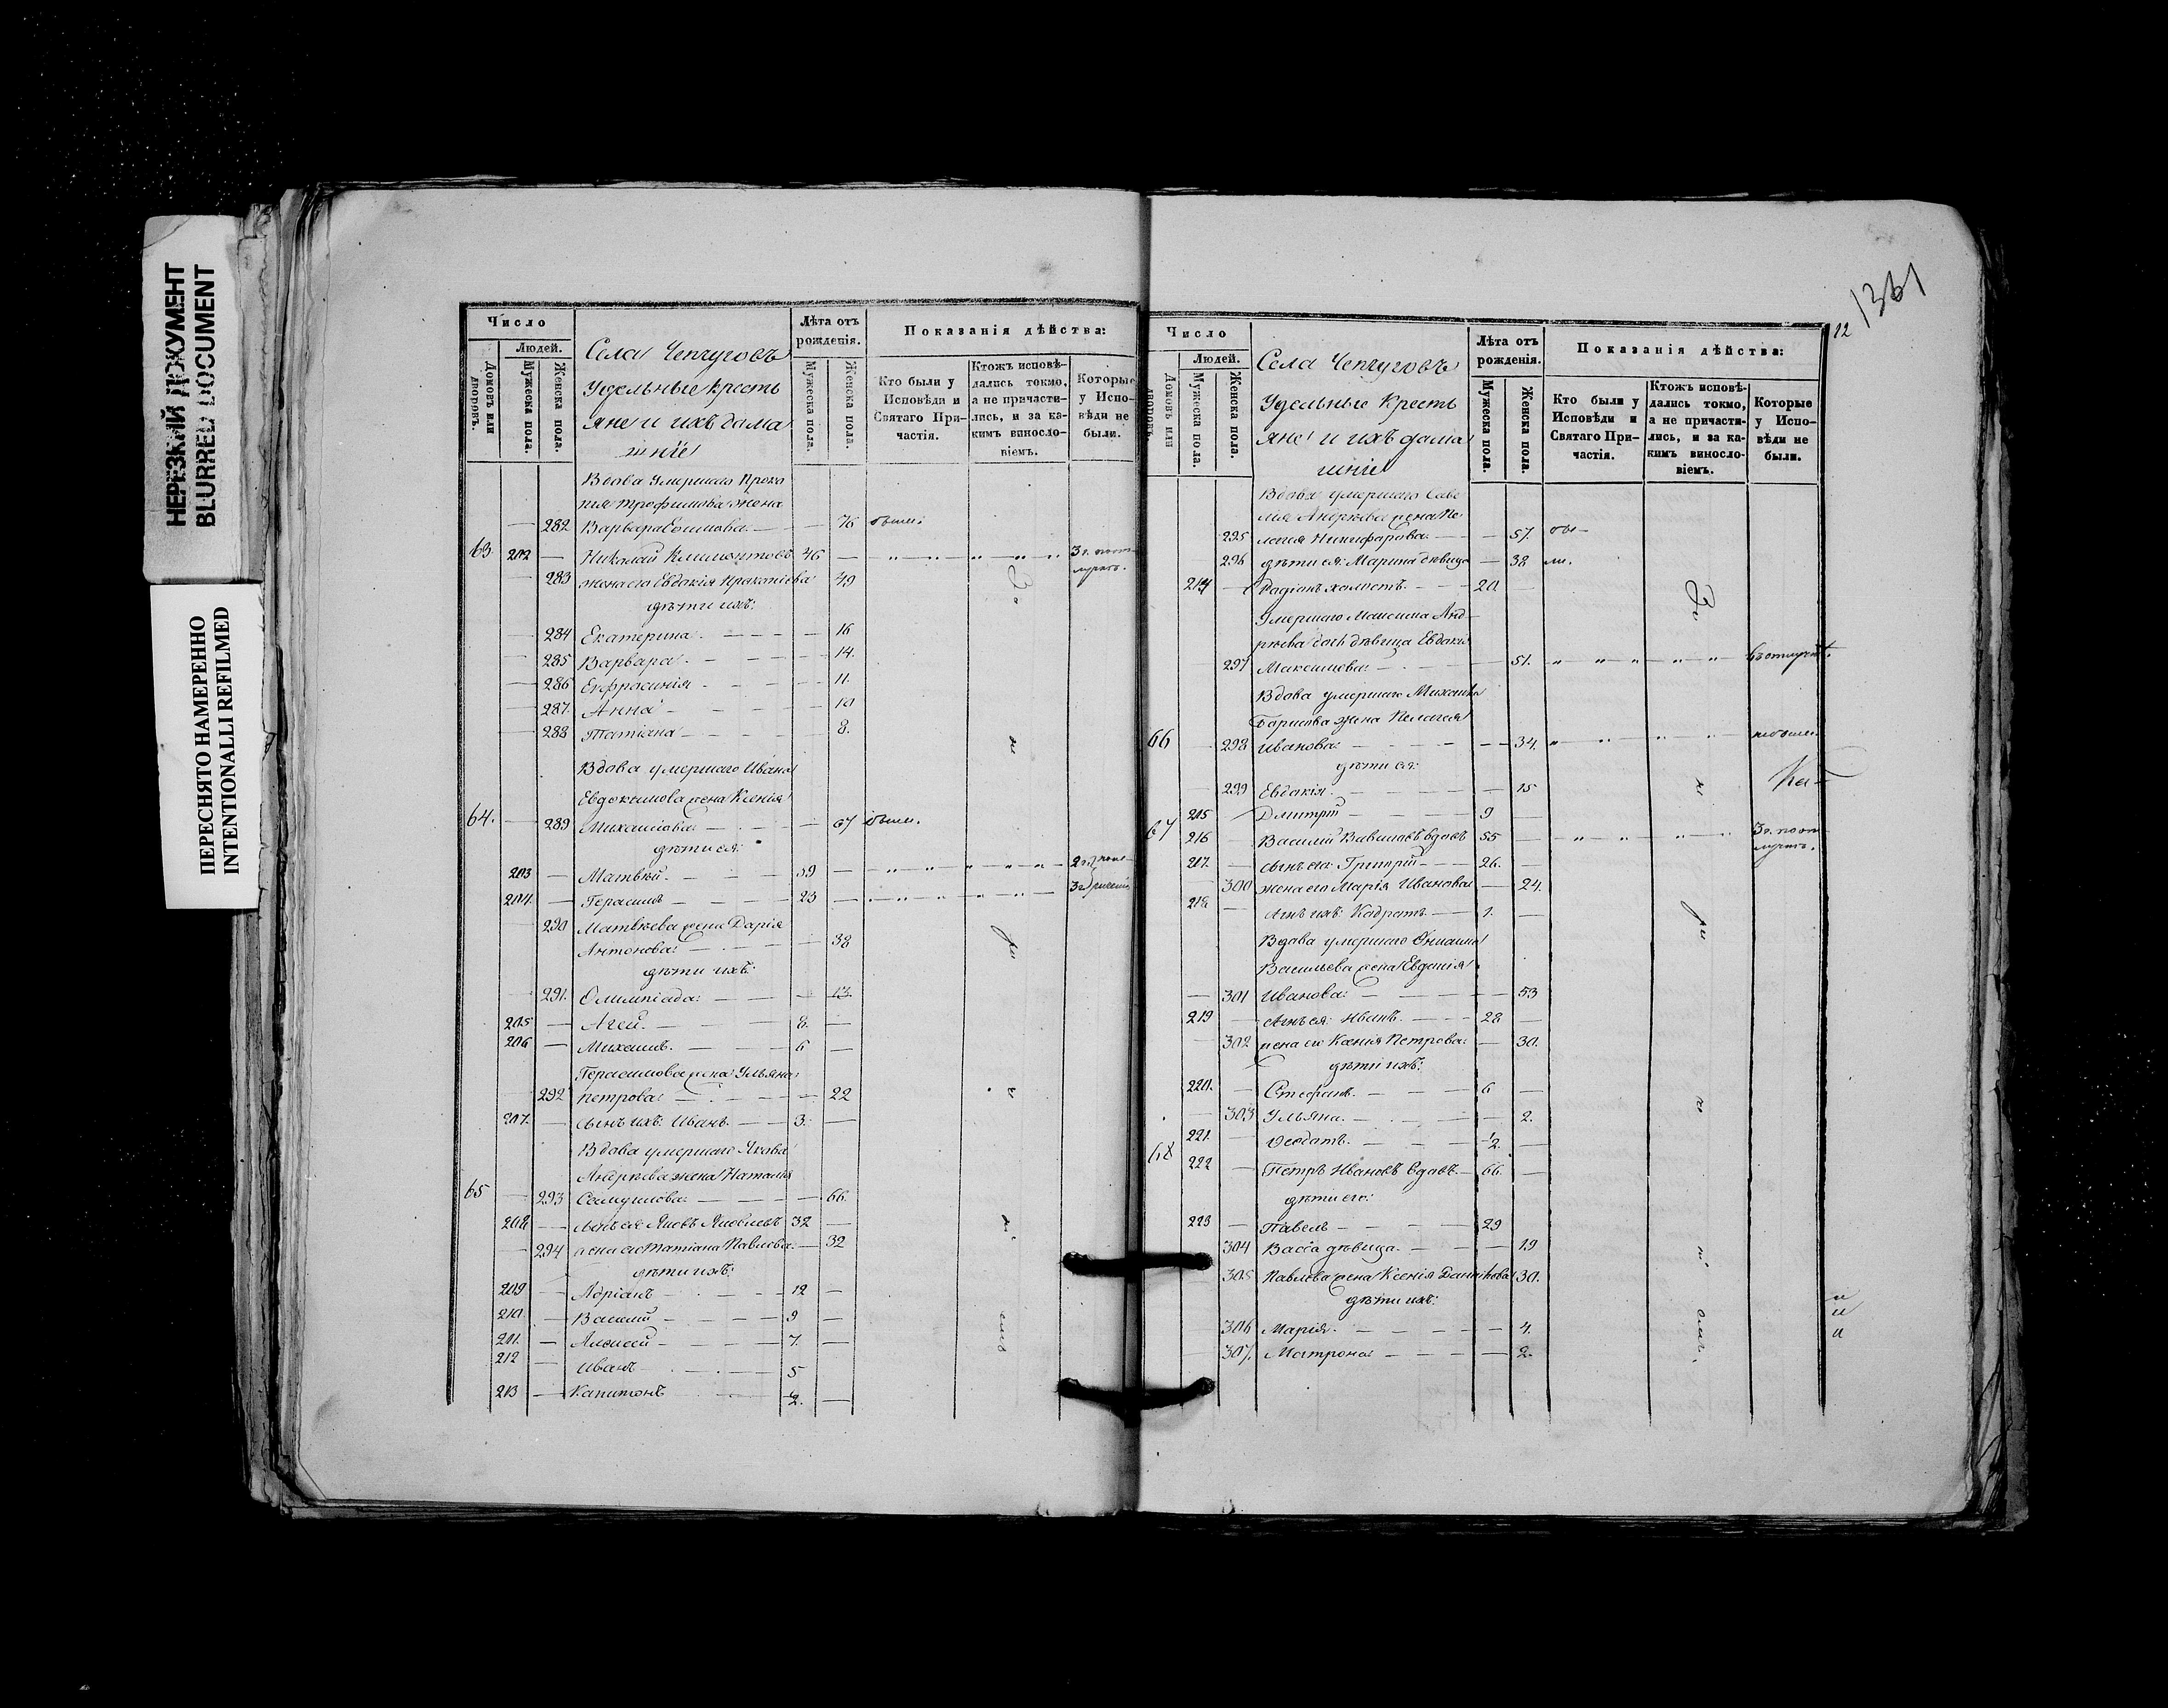 НЕРЕЗКИЙ ДОКУМЕНТ
BLURRED DOCUMENT
ПЕРЕСНЯТО НАМЕРЕННО
INTENTIONALLI REFILMED
Число
Людей.
Домовъ или дворовъ.
Мужеска пола.
Женска пола.
Села Чепчуговъ
Удельные кресть
яне и ихъ дома
шніе
Лѣта отъ рожденія.
Мужеска пола.
Женска пола.
Показанія дѣйства:
Кто были у Исповѣди и Святаго Причастія.
Ктожъ исповѣдались токмо, а не причастились, и за какимъ винословіемъ.
Которые у Исповѣди не были.
Вдова умершаго Проко
пія Трофимова жена
282 Варвара 76 были.
63 202 Николай Климонтовъ 46
283 жена его Евдокія Прокопіева 49
дѣти ихъ:
284 Екатерина 16
285 Варвара 14.
286 Ефросинія 11.
287. Анна 10
288 Татіана 8.
Вдова умершаго Ивана
Евдокимова жена Ксенія
64. 289 Михаилова 67 были.
дѣти ея:
203 Матвѣй 39
204. Герасимъ 23
290 Матвѣева жена Дарія
Антонова 38
дѣти ихъ:
291. Олимпіада 13.
205 Агей 8.
206 Михаилъ 6
Герасимова жена Ульяна
292 Петрова 22
207. сынъ ихъ: Иванъ 3.
Вдова умершаго Якова
Андреева жена Наталія
65 293 Самуилова 66.
208 сынъ ея Яковъ Яковлевъ 32
294 жена его Татіана Павлова 32
дѣти ихъ:
209 Адріанъ 12
210. Василій 9
211. Алексей 7.
212 Иванъ 5
213 Капитонъ 2.
1361
12
Число
Людей.
Домовъ или дворовъ.
Мужеска пола.
Женска пола.
Села Чепчуговъ
Удельные кресть
яне и ихъ дома
шніе
Лѣта отъ рожденія.
Мужеска пола.
Женска пола.
Показанія дѣйства:
Кто были у Исповѣди и Святаго Причастія.
Ктожъ исповѣдались токмо, а не причастились, и за какимъ винословіемъ.
Которые у Исповѣди не были.
Вдова умершаго Саве
лія Андреева жена Пе
295 лагея Никифорова 57. бы
296 дѣти ея: Марина дѣвица 38 ли.
214 Радіонъ холостъ 20.
Умершаго Максима Анд
реева дочь дѣвица Евдокія
297 Максимова 51.
Вдова умершаго Михаила
Борисова жена Пелагея
66 298 Иванова 34. небыли.
дѣти ея:
299 Евдокія 15
215 Дмитрій 9
67 216 Василій Вавиловъ вдовъ 55
217. сынъ его: Григорій 26.
300 жена его Марія Иванова 24.
218 сынъ ихъ: Кодратъ 1.
Вдова умершаго
Васильева жена Евдокія
301 Иванова 53
219 сынъ ея: Иванъ 28
302 жена его Ксенія Петрова 30.
дѣти ихъ:
220. Стефанъ 6
303 Ульяна 2.
221. Ѳеодотъ ½.
68 222 Петръ Ивановъ вдовъ 66.
дѣти его:
223 Павелъ 29
304 Васса дѣвица 19
305 Павлова жена Ксенія 30.
дѣти ихъ:
306 Марія 4.
307. Матрона 2.